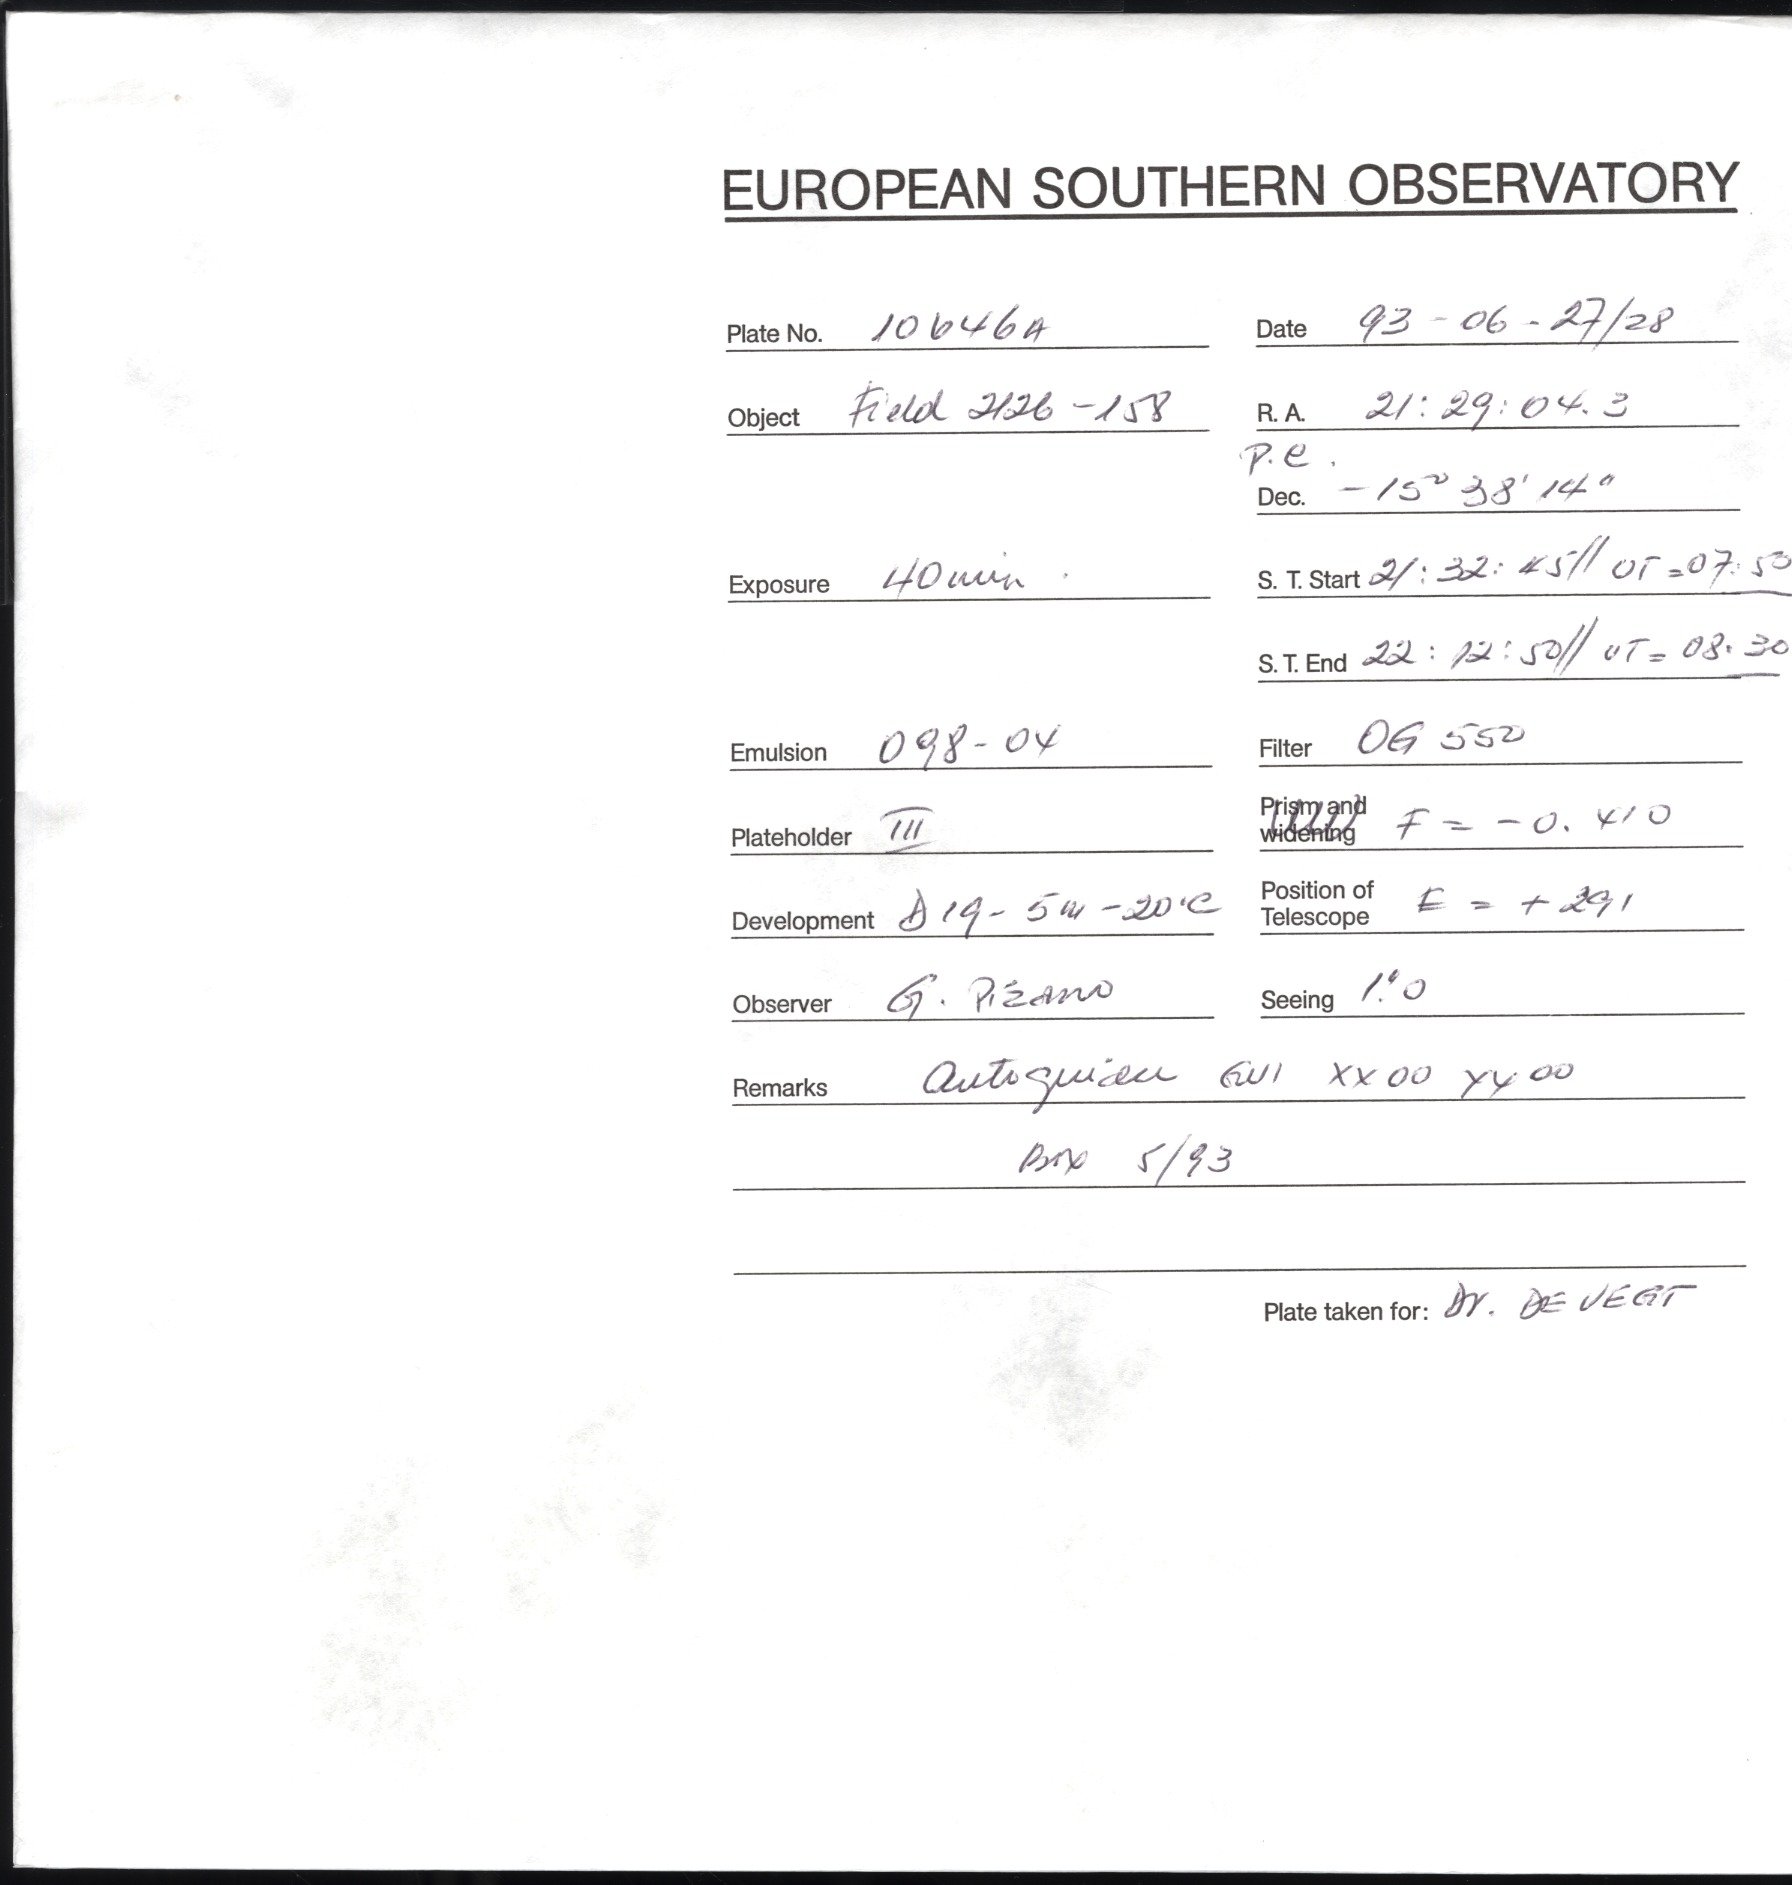 EUROPEAN SOUTHERN OBSERVATORY
Plate No. 10646A Date 93-06-27/28
Object Field 2126-158 R. A. 21:29:04.3
P.e.
Dec. -15° 38' 14"
Exposure 40min. S. T. Start 21:32:45// UT=07:50
S. T. End 22:12:50// UT=08:30
Emulsion 098-04 Filter OG 550
Plateholder III Prism and widening F = -0.410
Development D19-5m-20°C Position of Telescope E = +291
Observer G. Pizarro Seeing 1."0
Remarks XX00 YY00
Box 5/93
Plate taken for: Dr. DE VEGT